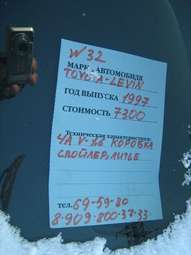 W 32
МАРКА АВТОМОБИЛЯ
TOYOTA-LEVIN
ГОД ВЫПУСКА 1997
СТОИМОСТЬ 7300
Технические характеристики:
4А V-16 КОРОБКА
СПОЙЛЕР, ЛИТЬЕ
тел. 69-59-80
8-909-800-37-33